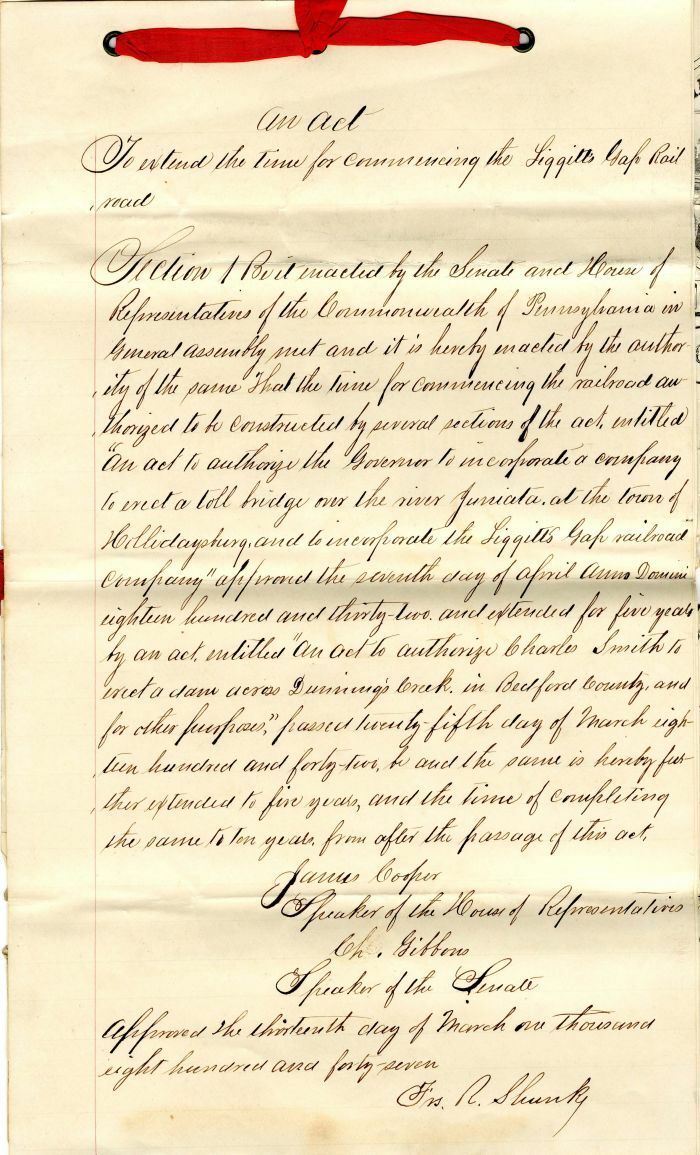 An Act
To extend the time for commencing the Liggitts Gap Rail
road
Section 1 Be it enacted by the Senate and House of
Representatives of the Commonwealth of Pennsylvania in
General Assembly met and it is hereby enacted by the author-
ity of the same That the time for commencing the railroad au-
thorized to be constructed by several sections of the act, entitled
"An act to authorize the Governor to incorporate a company
to erect a toll bridge over the river Juniata, at the town of
Hollidaysburg, and to incorporate the Liggitt's Gap railroad
Company" approved the seventh day of April Anno Domini
eighteen hundred and thirty-two, and extended for five years
by an act, entitled "An act to authorize Charles Smith to
erect a dam across Dunning's Creek, in Bedford County, and
for other purposes," passed twenty-fifth day of March eigh-
teen hundred and forty-two, be and the same is hereby fur-
ther extended to five years, and the time of completing
the same to ten years, from after the passage of this act.
James Cooper
Speaker of the House of Representatives
Ch. Gibbons
Speaker of the Senate
Approved the thirteenth day of March one thousand
eight hundred and forty-seven
Frs. R. Shunk